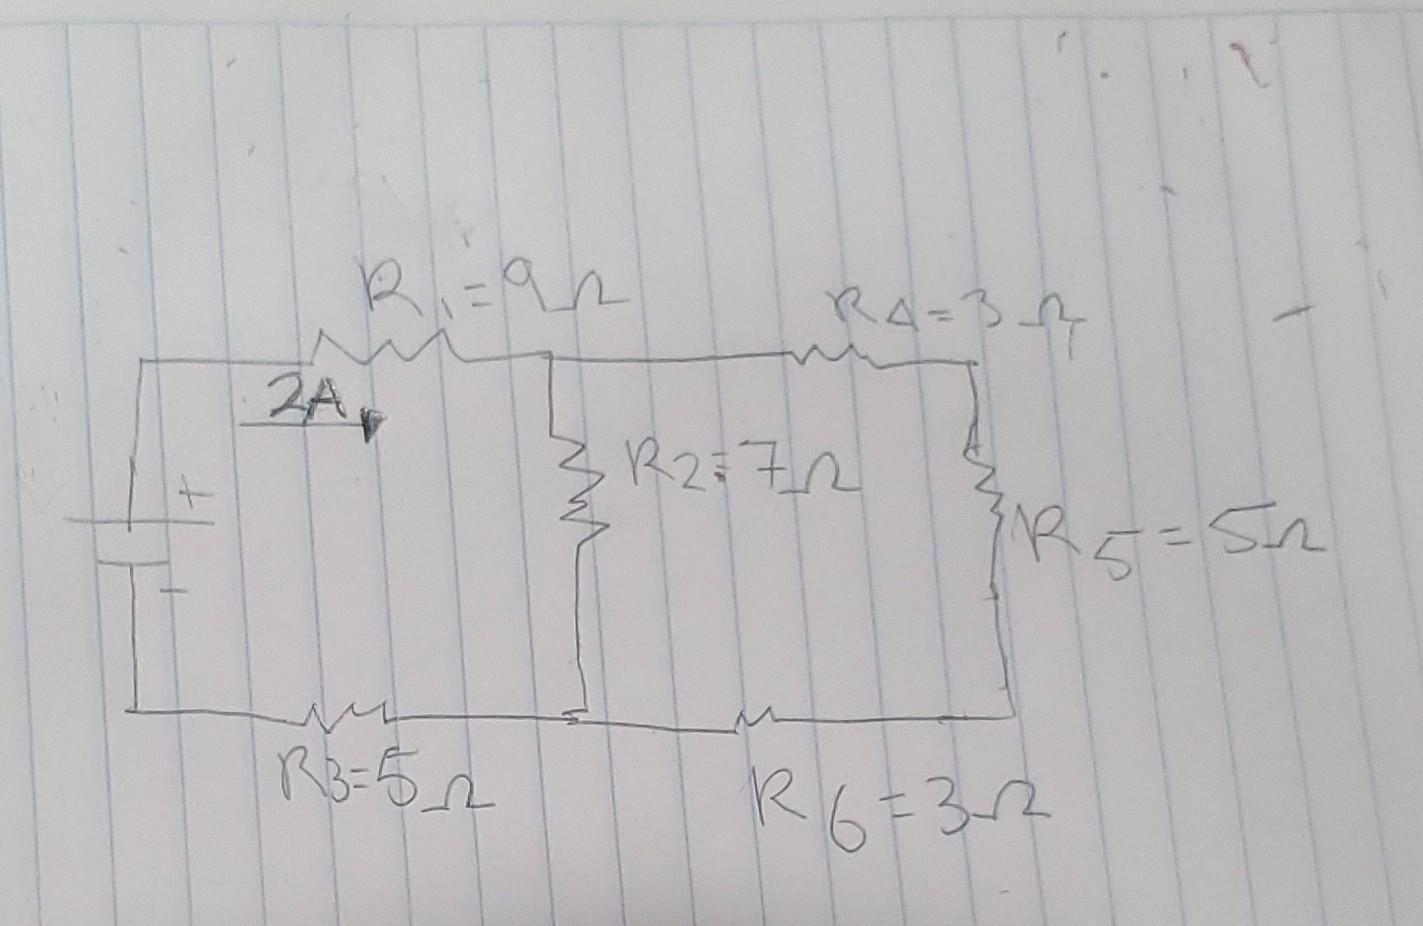 R1=9Ω
R4=3Ω
2A
+
R2=7Ω
R5=5Ω
-
R3=5Ω
R6=3Ω